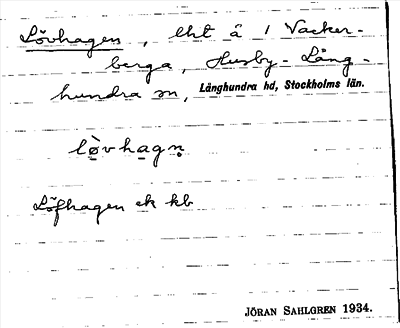 Lövhagen, lht å 1 Vacker-
berga, Husby-Lång-
hundra sn, Långhundra hd, Stockholms län.
lø̀vhagṇ
Löfhagen ek kb
JÖRAN SAHLGREN 1934.